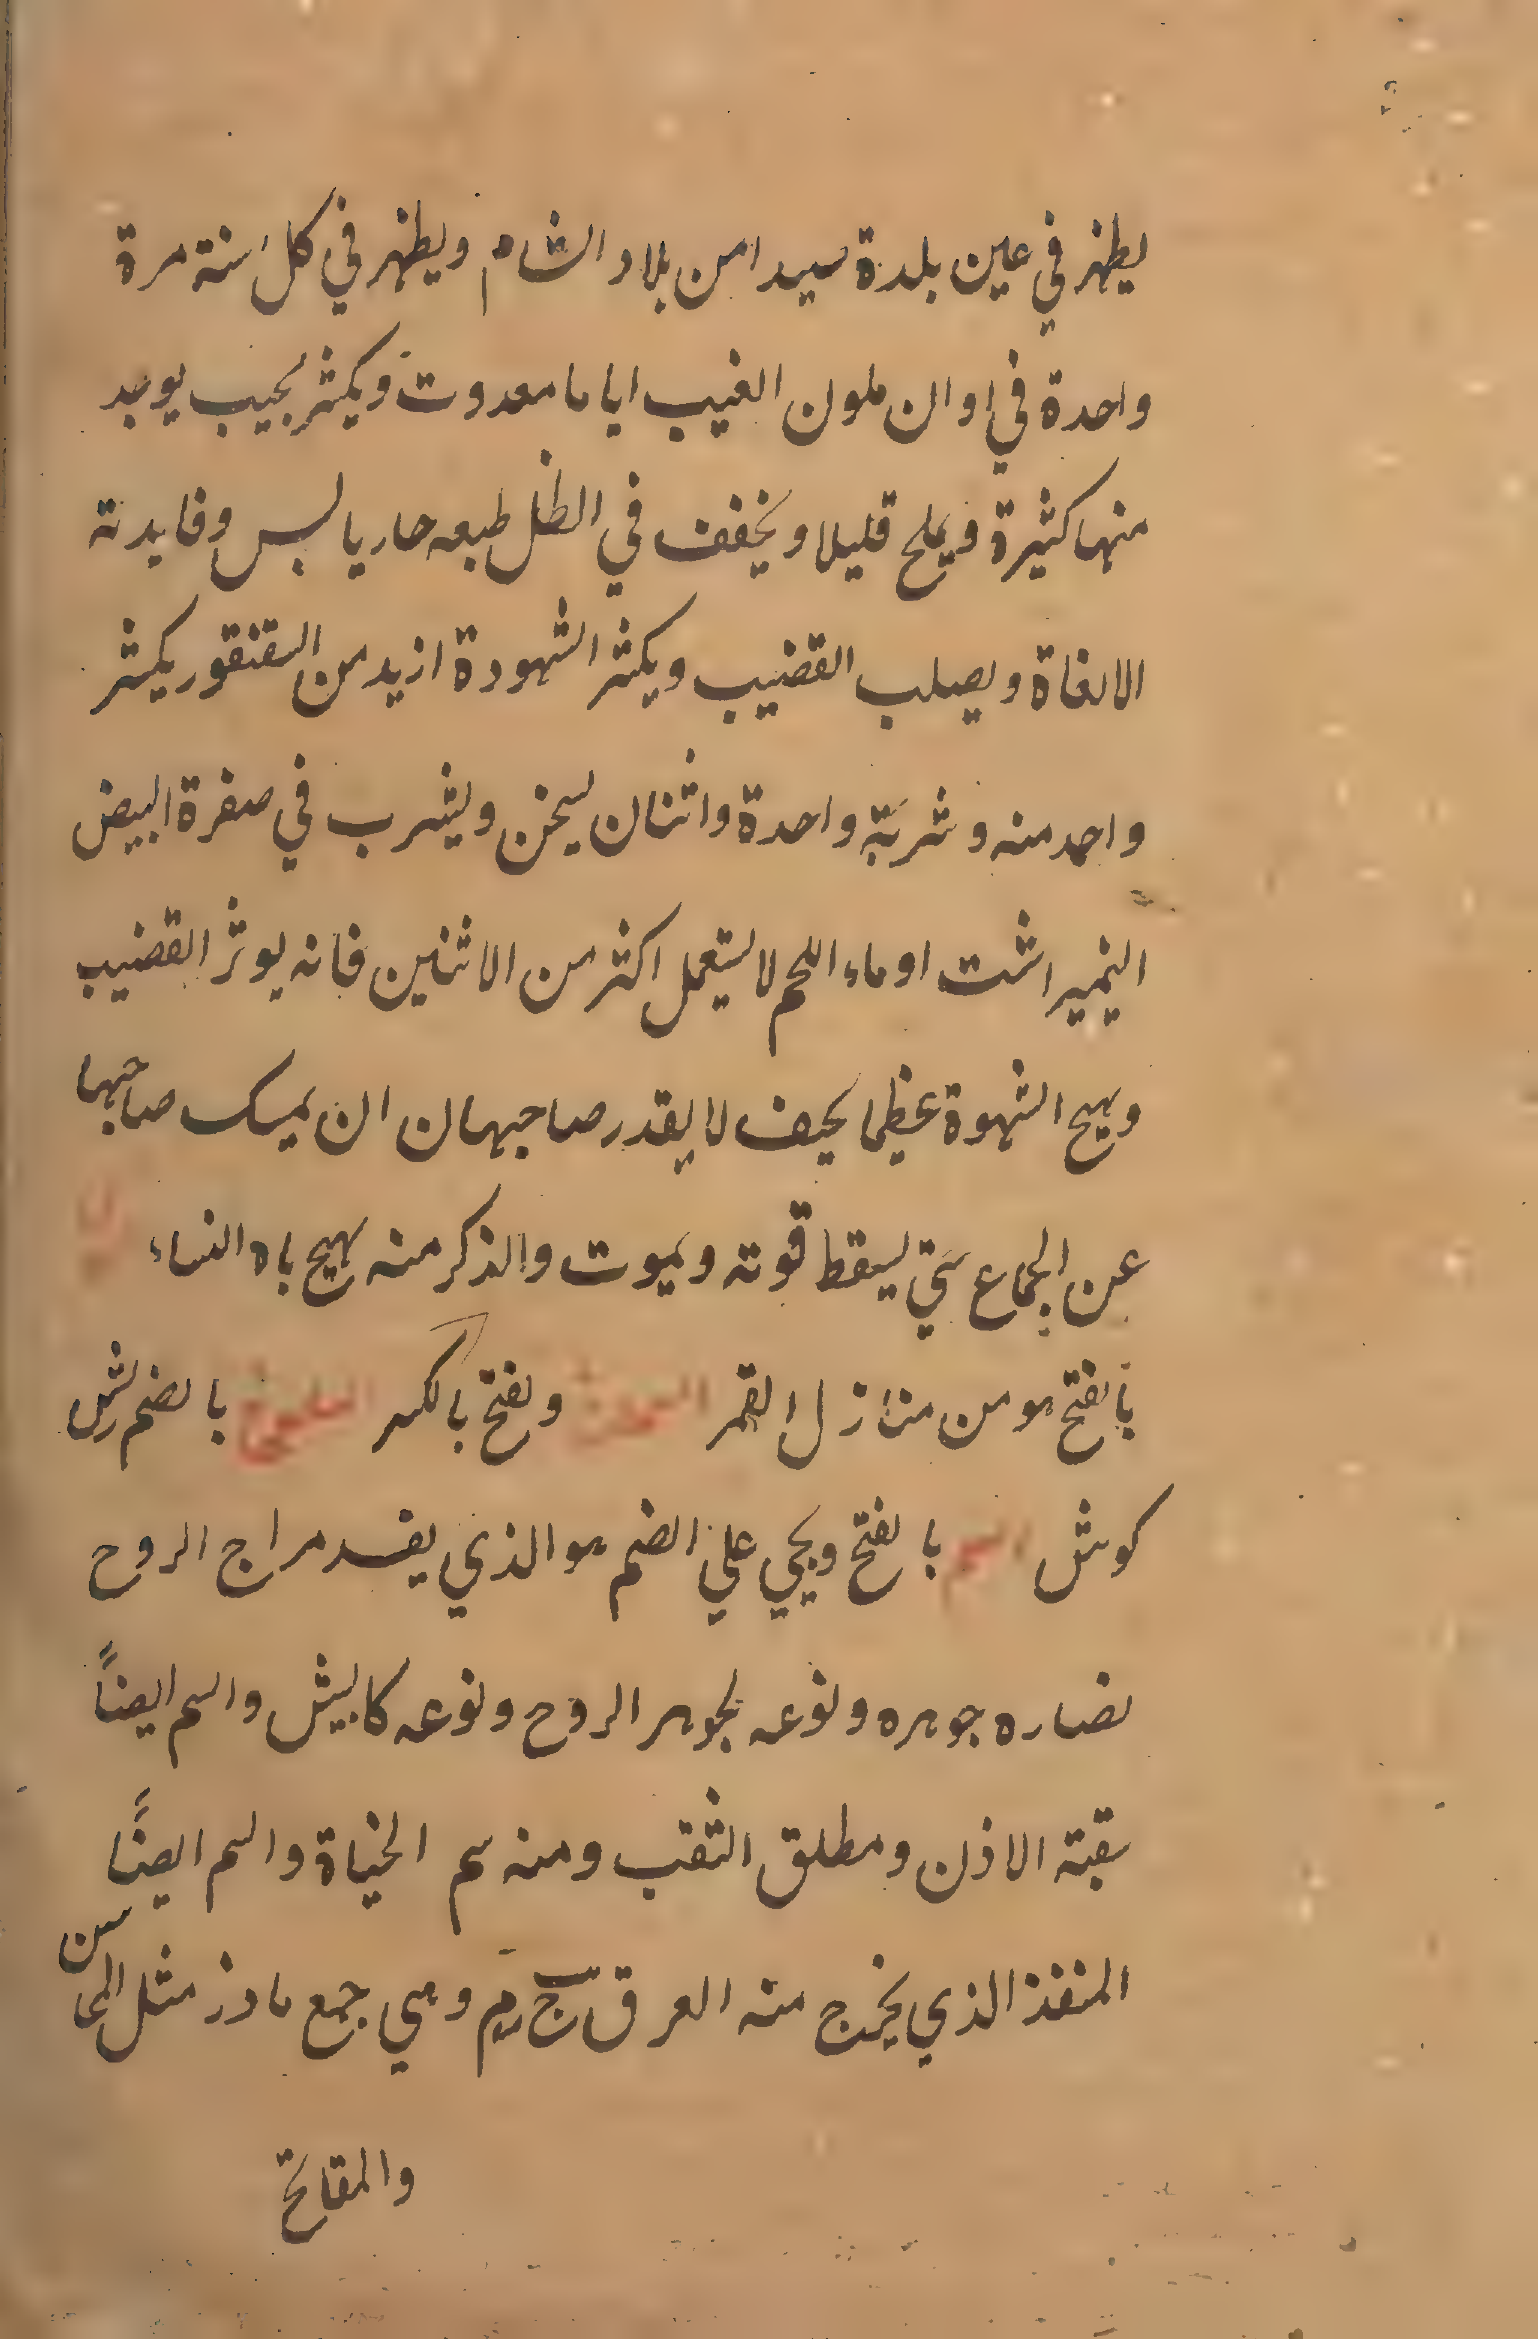 يظهر في عين بلدة سيدا من بلاد الشام ويظهر في كل سنة مرة
واحدة في اوان ملون الغيب اياما معدوت ويكثر بحيب يوبد
منها كثيرة ويملح قليلا ويخفف في الظل طبعه حار يابس وفايدته
الانغاة ويصلب القضيب ويكثر الشهودة ازيد من السقنقور يكثر
واحد منه وشربة واحدة واثنان يسخن ويشرب في صفرة البيض
النيمبراشت او ماء اللحم لا يستعمل اكثر من الاثنين فانه يوثر القضيب
ويهيج الشهوة عظيما بحيف لا يقدر صاحبها ان ان يمسك صاحبها
عن الجماع حتي يسقط قوته ويموت والذكر منه يهيج باه النساء
بالفتح هو من منازل القمر ويفتح بالكسر بالضم رش
كوش السم بالفتح ويجي علي الضم هو الذي يفسد مراج الروح
بضاره جوهره ونوعه بجوهر الروح ونوعه كالبيش والسم ايضاً
سقبة الاذن ومطلق الثقب ومنه سم الخياة والسم ايضاً
المنفذ الذي يخرج منه العرق ج وهي جمع مادر مثل المحاسن
والمقابح